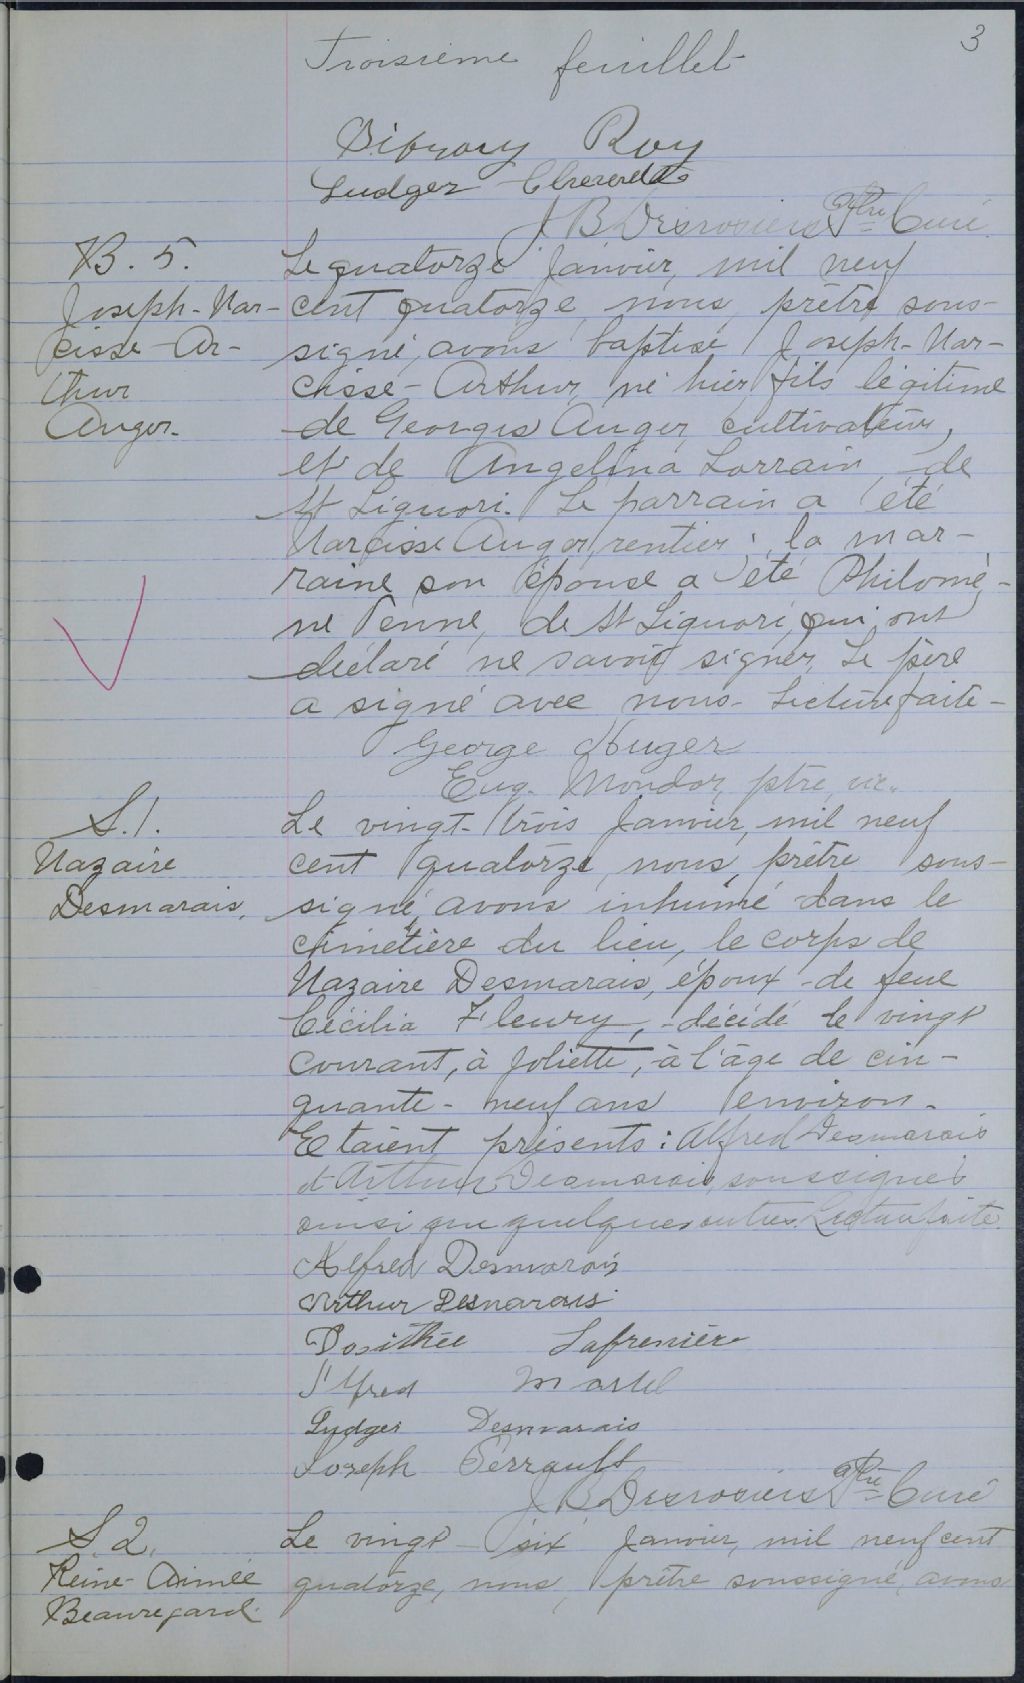 3
Troisième feuillet
Roy
Ludger
J B Desrosiers Ptre Curé
B. 5.
Joseph-Nar-
cisse-Ar-
thur
Auger.
Le quatorze Janvier, mil neuf
cent quatorze, nous, prêtre sous-
signé, avons baptisé Joseph-Nar-
cisse-Arthur, né hier, fils légitime
de Georges Auger, cultivateur,
et de Angelina Lorrain, de
St Liguori. Le parrain a été
Narcisse Auger, rentier; la mar-
raine son épouse a été Philomè-
ne Venne, de St Liguori, qui ont
déclaré ne savoir signer. Le père
a signé avec nous. Lecture faite-
George Auger
Eug. Mondor, ptre, vic.
S. 1.
Nazaire
Desmarais.
Le vingt-trois Janvier, mil neuf
cent quatorze, nous, prêtre sous-
signé, avons inhumé dans le
cimetière du lieu, le corps de
Nazaire Desmarais, époux de feue
Cécilia Fleury, décédé le vingt
courant, à Joliette, à l'âge de cin-
quante-neuf ans environ.
Etaient présents: Alfred Desmarais
et Arthur Desmarais, soussignés
ainsi que quelques autres. Lecture faite.
Alfred Desmarais
Arthur Desmarais
Dosithée Lafrenière
Alfred Martel
Ludger Desmarais
Joseph Perrault
J B Desrosiers Ptre Curé
S. 2.
Reine-Aimée
Beauregard.
Le vingt-six Janvier, mil neuf cent
quatorze, nous, prêtre soussigné, avons